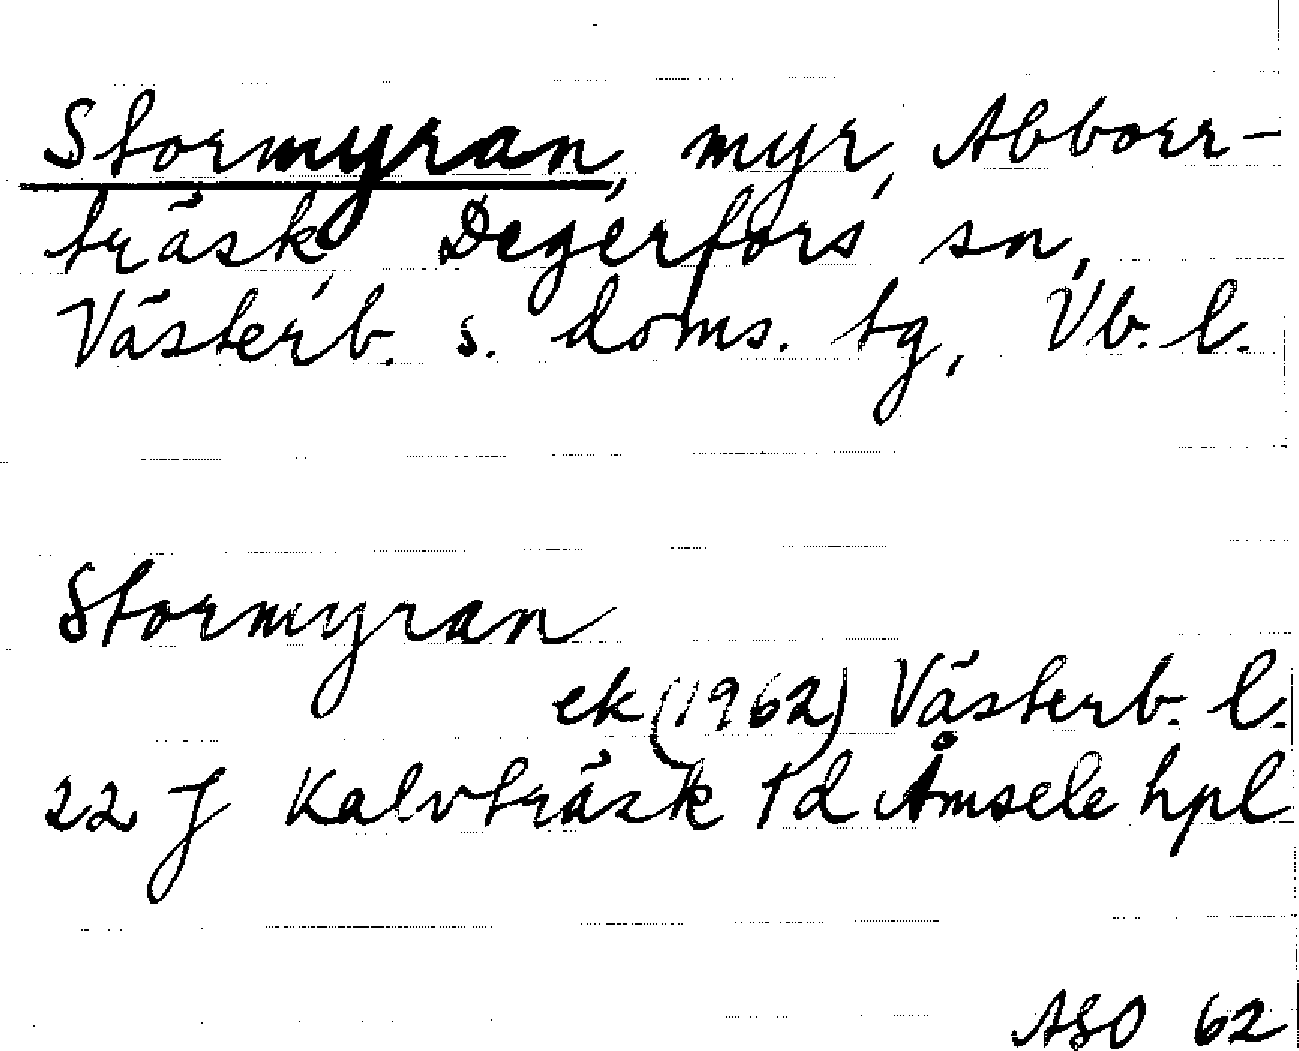 Stormyran, myr, Abborr-
träsk, Degerfors sn,
Västerb. s. doms. tg, Vb. l.
Stormyran
ek (1962) Västerb. l.
22 J Kalvträsk 1d Åmsele hpl
ASO 62